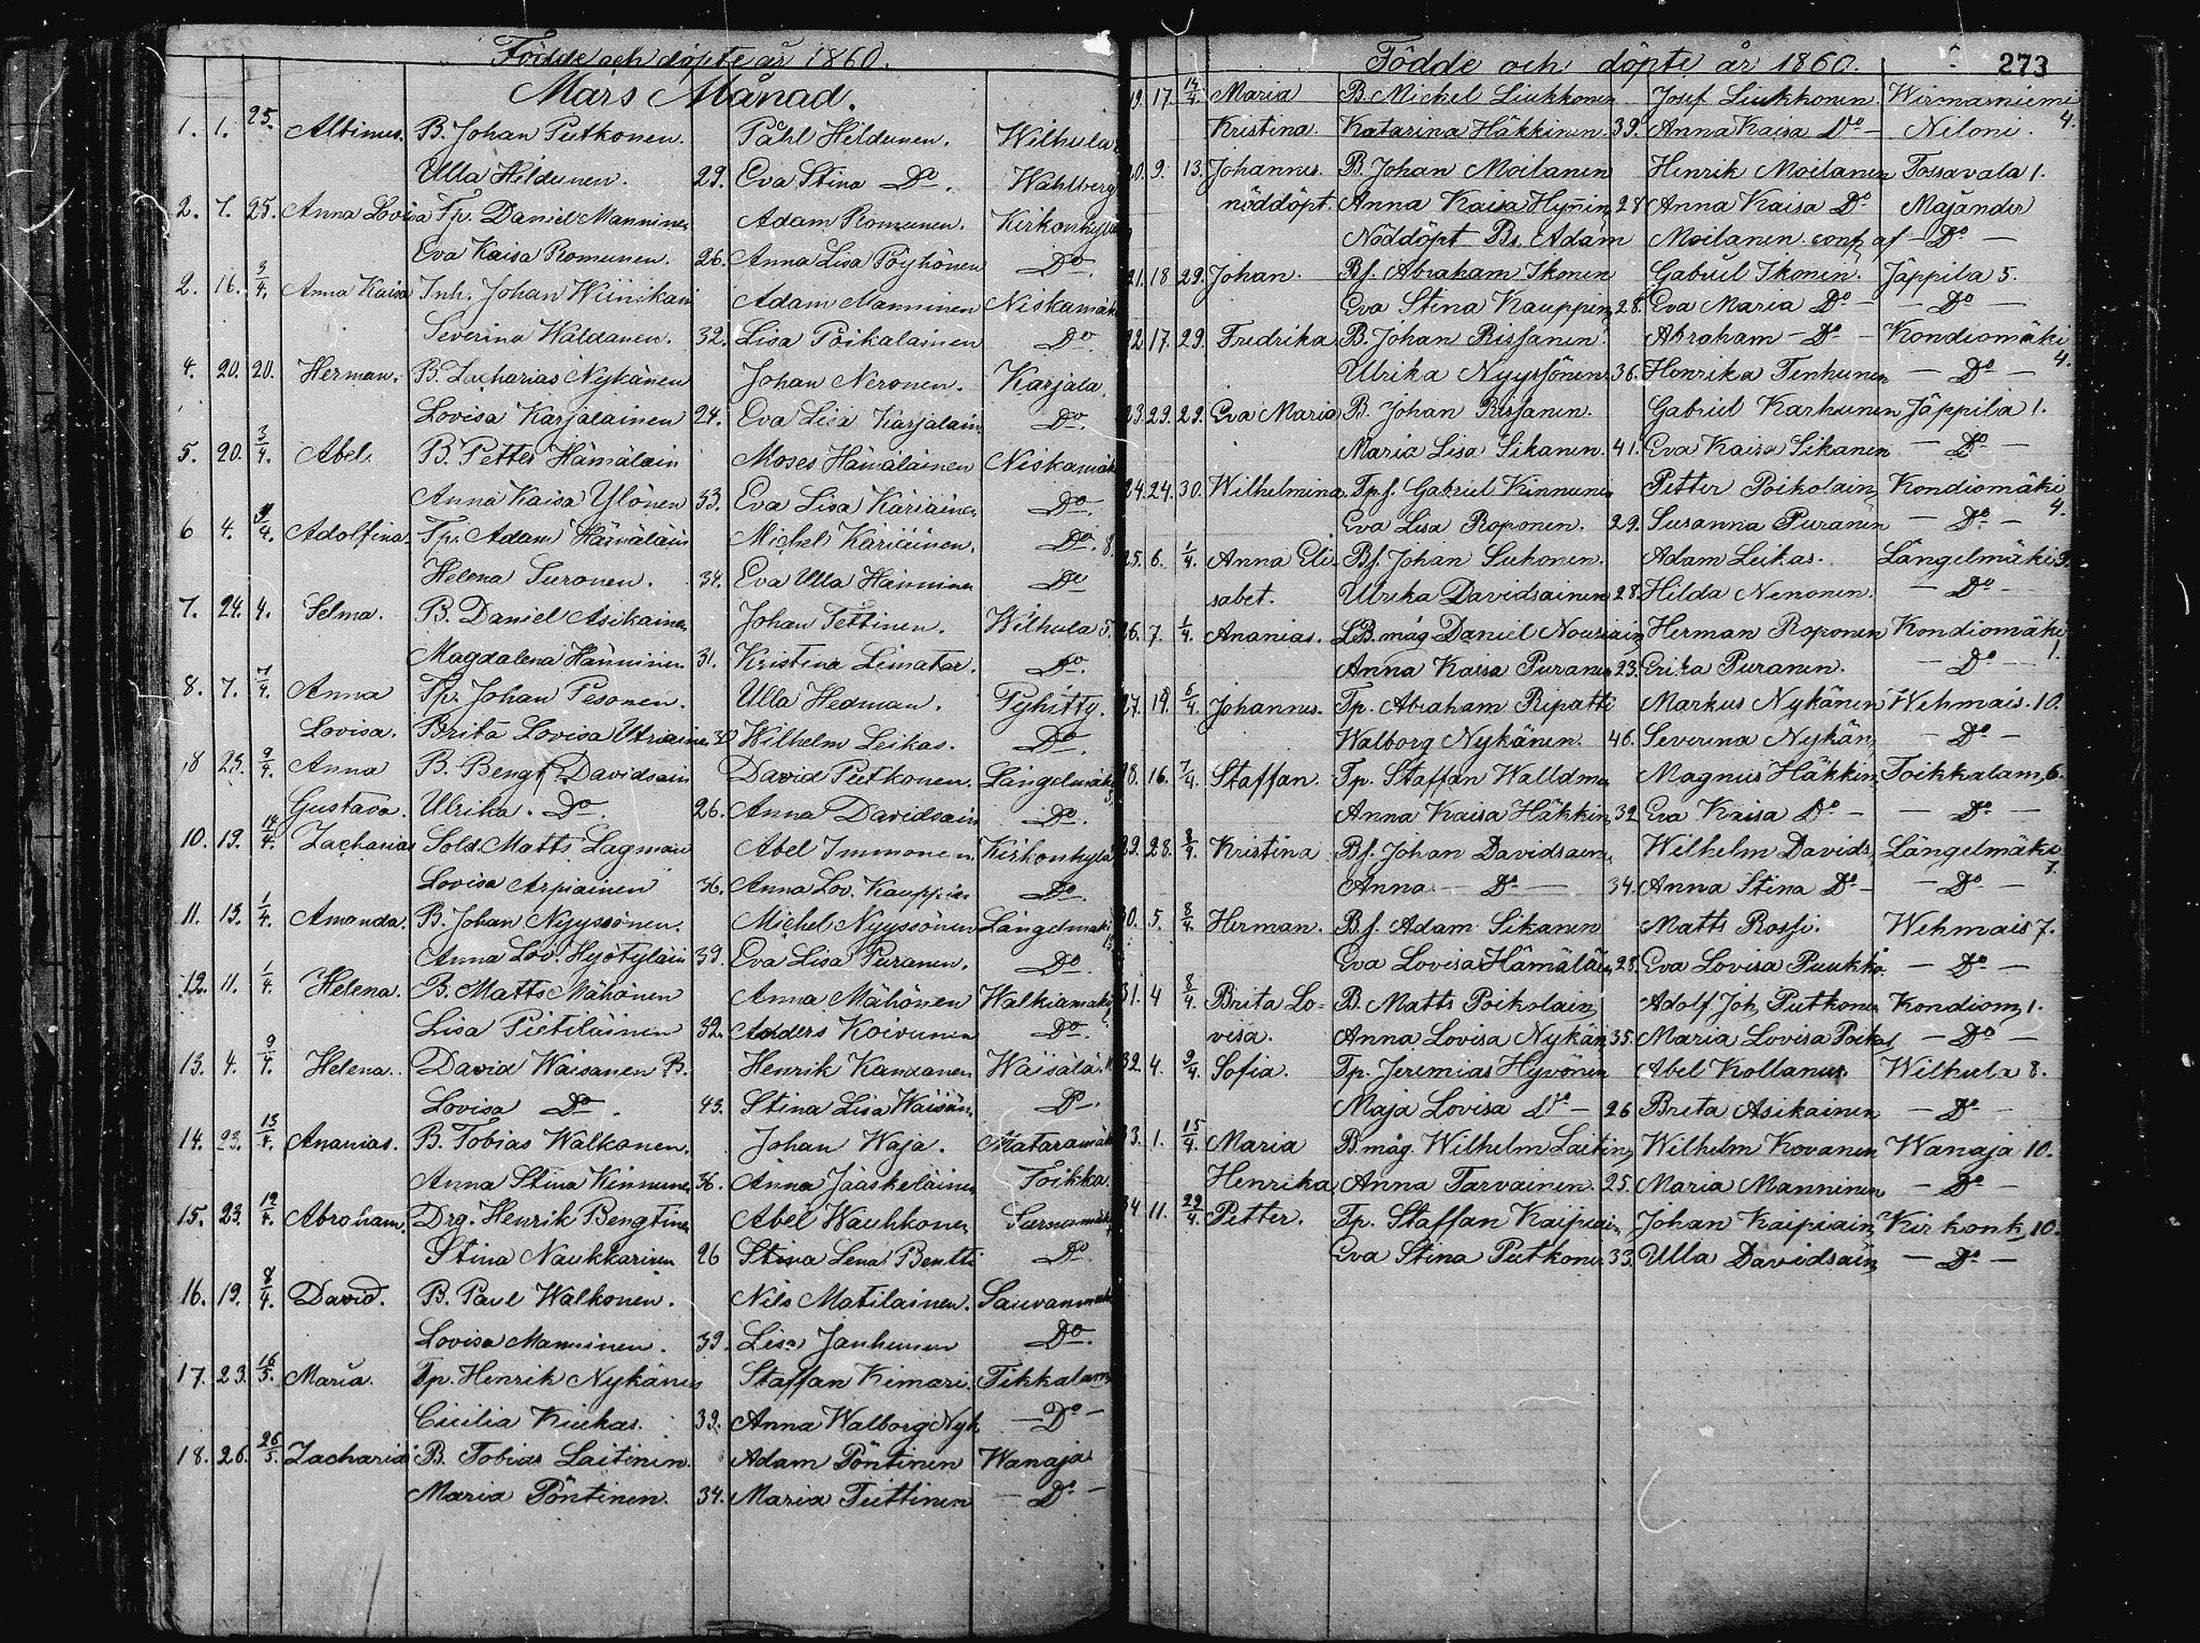 Födde och döpte år 1860.
Mars Månad.
1. 1. 25. Albinus. B. Johan Putkonen. Påhl Hildunen. Wilhula
Ulla Hildunen. 29. Eva Stina Do. Wahlberg
2. 7. 25. Anna Lovisa Tp. Daniel Manninen Adam Romunen. Kirkonkylä
Eva Kaisa Romunen. 26. Anna Lisa Pöyhönen Do.
2. 16. 3/4. Anna Kaisa Inh. Johan Wiinikain Adam Manninen Niskamäki
Severina Waldanen. 32. Lisa Poikalainen Do.
4. 20. 20. Herman. B. Zacharias Nykänen Johan Neronen. Karjala.
Lovisa Karjalainen 24. Eva Lisa Karjalain Do.
5. 20. 3/4. Abel. B. Petter Hämäläin Moses Hämäläinen Niskamäki
Anna Kaisa Ylönen 33. Eva Lisa Käriäinen Do.
6 4. /4. Adolfina. Tp. Adam Hämäläin Michel Käriäinen. Do. 8.
Helena Suronen. 34. Eva Ulla Hänninen Do
7. 24. 4. Selma. B. Daniel Asikainen Johan Tettinen. Wilhula 5.
Magdalena Hänninen 31. Kristina Limatar. Do.
8. 7. 7/4. Anna Tp. Johan Pesonen. Ulla Hedman. Pyhitty.
Lovisa. Brita Lovisa Utriainen Wilhelm Leikas. Do.
18 23. 9/4. Anna B. Bengt Davidsain David Putkonen. Längelmäki
Gustava. Ulrika. Do. 26. Anna Davidsain Do.
10. 19. 14/4. Zacharias Sold. Matts Lagman Abel Immonen Kirkonkylä
Lovisa Arpiainen 36. Anna Lov. Kauppin Do.
11. 13. 1/4. Amanda. B. Johan Nyyssönen. Michel Nyyssönen Längelmäki
Anna Lov. Hyötyläin 39. Eva Lisa Puranen. Do.
12. 11. 1/4. Helena. B. Matts Mähönen Anna Mähönen Walkiamäki
Lisa Pietiläinen 32. Anders Koivunen Do.
13. 4. 9/4. Helena. David Waisanen B. Henrik Kanxanen Wäisälä.
Lovisa Do. 43. Stina Lisa Waisän Do.
14. 23. 13/4. Ananias. B. Tobias Walkonen. Johan Waja. Mataramäki
Anna Stina Kinnunen 36. Anna Jääskeläinen Toikka.
15. 23. 12/4. Abraham. Drg. Henrik Bengtinen Abel Wauhkonen Surnumäki
Stina Naukkarinen 26 Stina Lena Bentti Do.
16. 19. 8/4. David. B. Paul Walkonen. Nils Matilainen. Sauvanmäki
Lovisa Manninen. 39. Lisa Janhunen Do.
17. 23. 16/5. Maria. Tp. Henrik Nykänen Staffan Kimari. Tikkalam
Cicilia Kiukas. 39. Anna Walborg Nyk. — Do —
18. 26. 26/5. Zacharias B. Tobias Laitinen. Adam Pöntinen Wanaja
Maria Pöntinen. 34. Maria Teittinen — Do —
Födde och döpte år 1860. 273
19. 17. 14/4. Maria B. Michel Liukkonen Josef Liukkonen. Wirmasniemi
Kristina. Katarina Häkkinen. 39. Anna Kaisa Do — Niloni. 4.
20. 9. 13. Johannes. B. Johan Moilanen Henrik Moilanen Tossavala 1.
nöddöpt. Anna Kaisa Hyminen 28 Anna Kaisa Do Majander
Nöddöpt Bs. Adam Moilanen. conf. af — Do —
21. 18 29. Johan. Bf. Abraham Ikonen Gabriel Ikonen. Jäppilä 5.
Eva Stina Kauppin, 28. Eva Maria Do — — Do —
22. 17. 29. Fredrika B. Johan Rissanen. Abraham — Do — Kondiomäki
Ulrika Nyyssönen. 36. Henrika Tenhunen — Do — 4.
23. 29. 29. Eva Maria B. Johan Rissanen. Gabriel Karhunen Jäppilä 1.
Maria Lisa Sikanen. 41. Eva Kaisa Sikanen — Do —
24. 24. 30. Wilhelmina, Tpf. Gabriel Kinnunen Petter Poikolain, Kondiomäki
Eva Lisa Roponen. 29. Susanna Puranen — Do — 4.
25. 6. 1/4. Anna Eli- Bf. Johan Suhonen. Adam Leikas. Längelmäki 9.
sabet. Ulrika Davidsainen 28. Hilda Nenonen. — Do —
26. 7. 1/4. Ananias. LB. måg Daniel Nousiain, Herman Roponen Kondiomäki
Anna Kaisa Puranen 23. Erika Puranen. — Do — 1.
27. 19. 5/4. Johannes. Tp. Abraham Ripatti Markus Nykänen Wehmais. 10.
Walborg Nykänen. 46. Severina Nykän, — Do —
28. 16. 7/4. Staffan. Tp. Staffan Walldman Magnus Häkkin, Toikkalam, 6.
Anna Kaisa Häkkin, 32 Eva Kaisa Do — — Do —
29. 28. 8/4. Kristina Bf. Johan Davidsain, Wilhelm Davids, Längelmäki
Anna — Do — 34. Anna Stina Do — — Do — 7.
30. 5. 8/4. Herman. Bf. Adam Sikanen Matts Rossi. Wehmais 7.
Eva Lovisa Hämäläin 28. Eva Lovisa Puukko — Do —
31. 4 8/4. Brita Lo- B. Matts Poikolain, Adolf Joh. Putkonen Kondiom, 1.
visa. Anna Lovisa Nykän, 35. Maria Lovisa Poikol — Do —
32. 4. 9/4. Sofia. Tp. Jeremias Hyvönen Abel Kollanus. Wilhula 8.
Maja Lovisa Do — 26 Brita Asikainen — Do —
33. 1. 15/4. Maria B. måg. Wilhelm Laitin, Wilhelm Kovanen Wanaja 10.
Henrika, Anna Tarvainen. 25. Maria Manninen — Do —
34 11. 29/4. Petter. Tp. Staffan Kaipiain, Johan Kaipiain, Kirkonk, 10.
Eva Stina Putkonen 33. Ulla Davidsain, — Do —